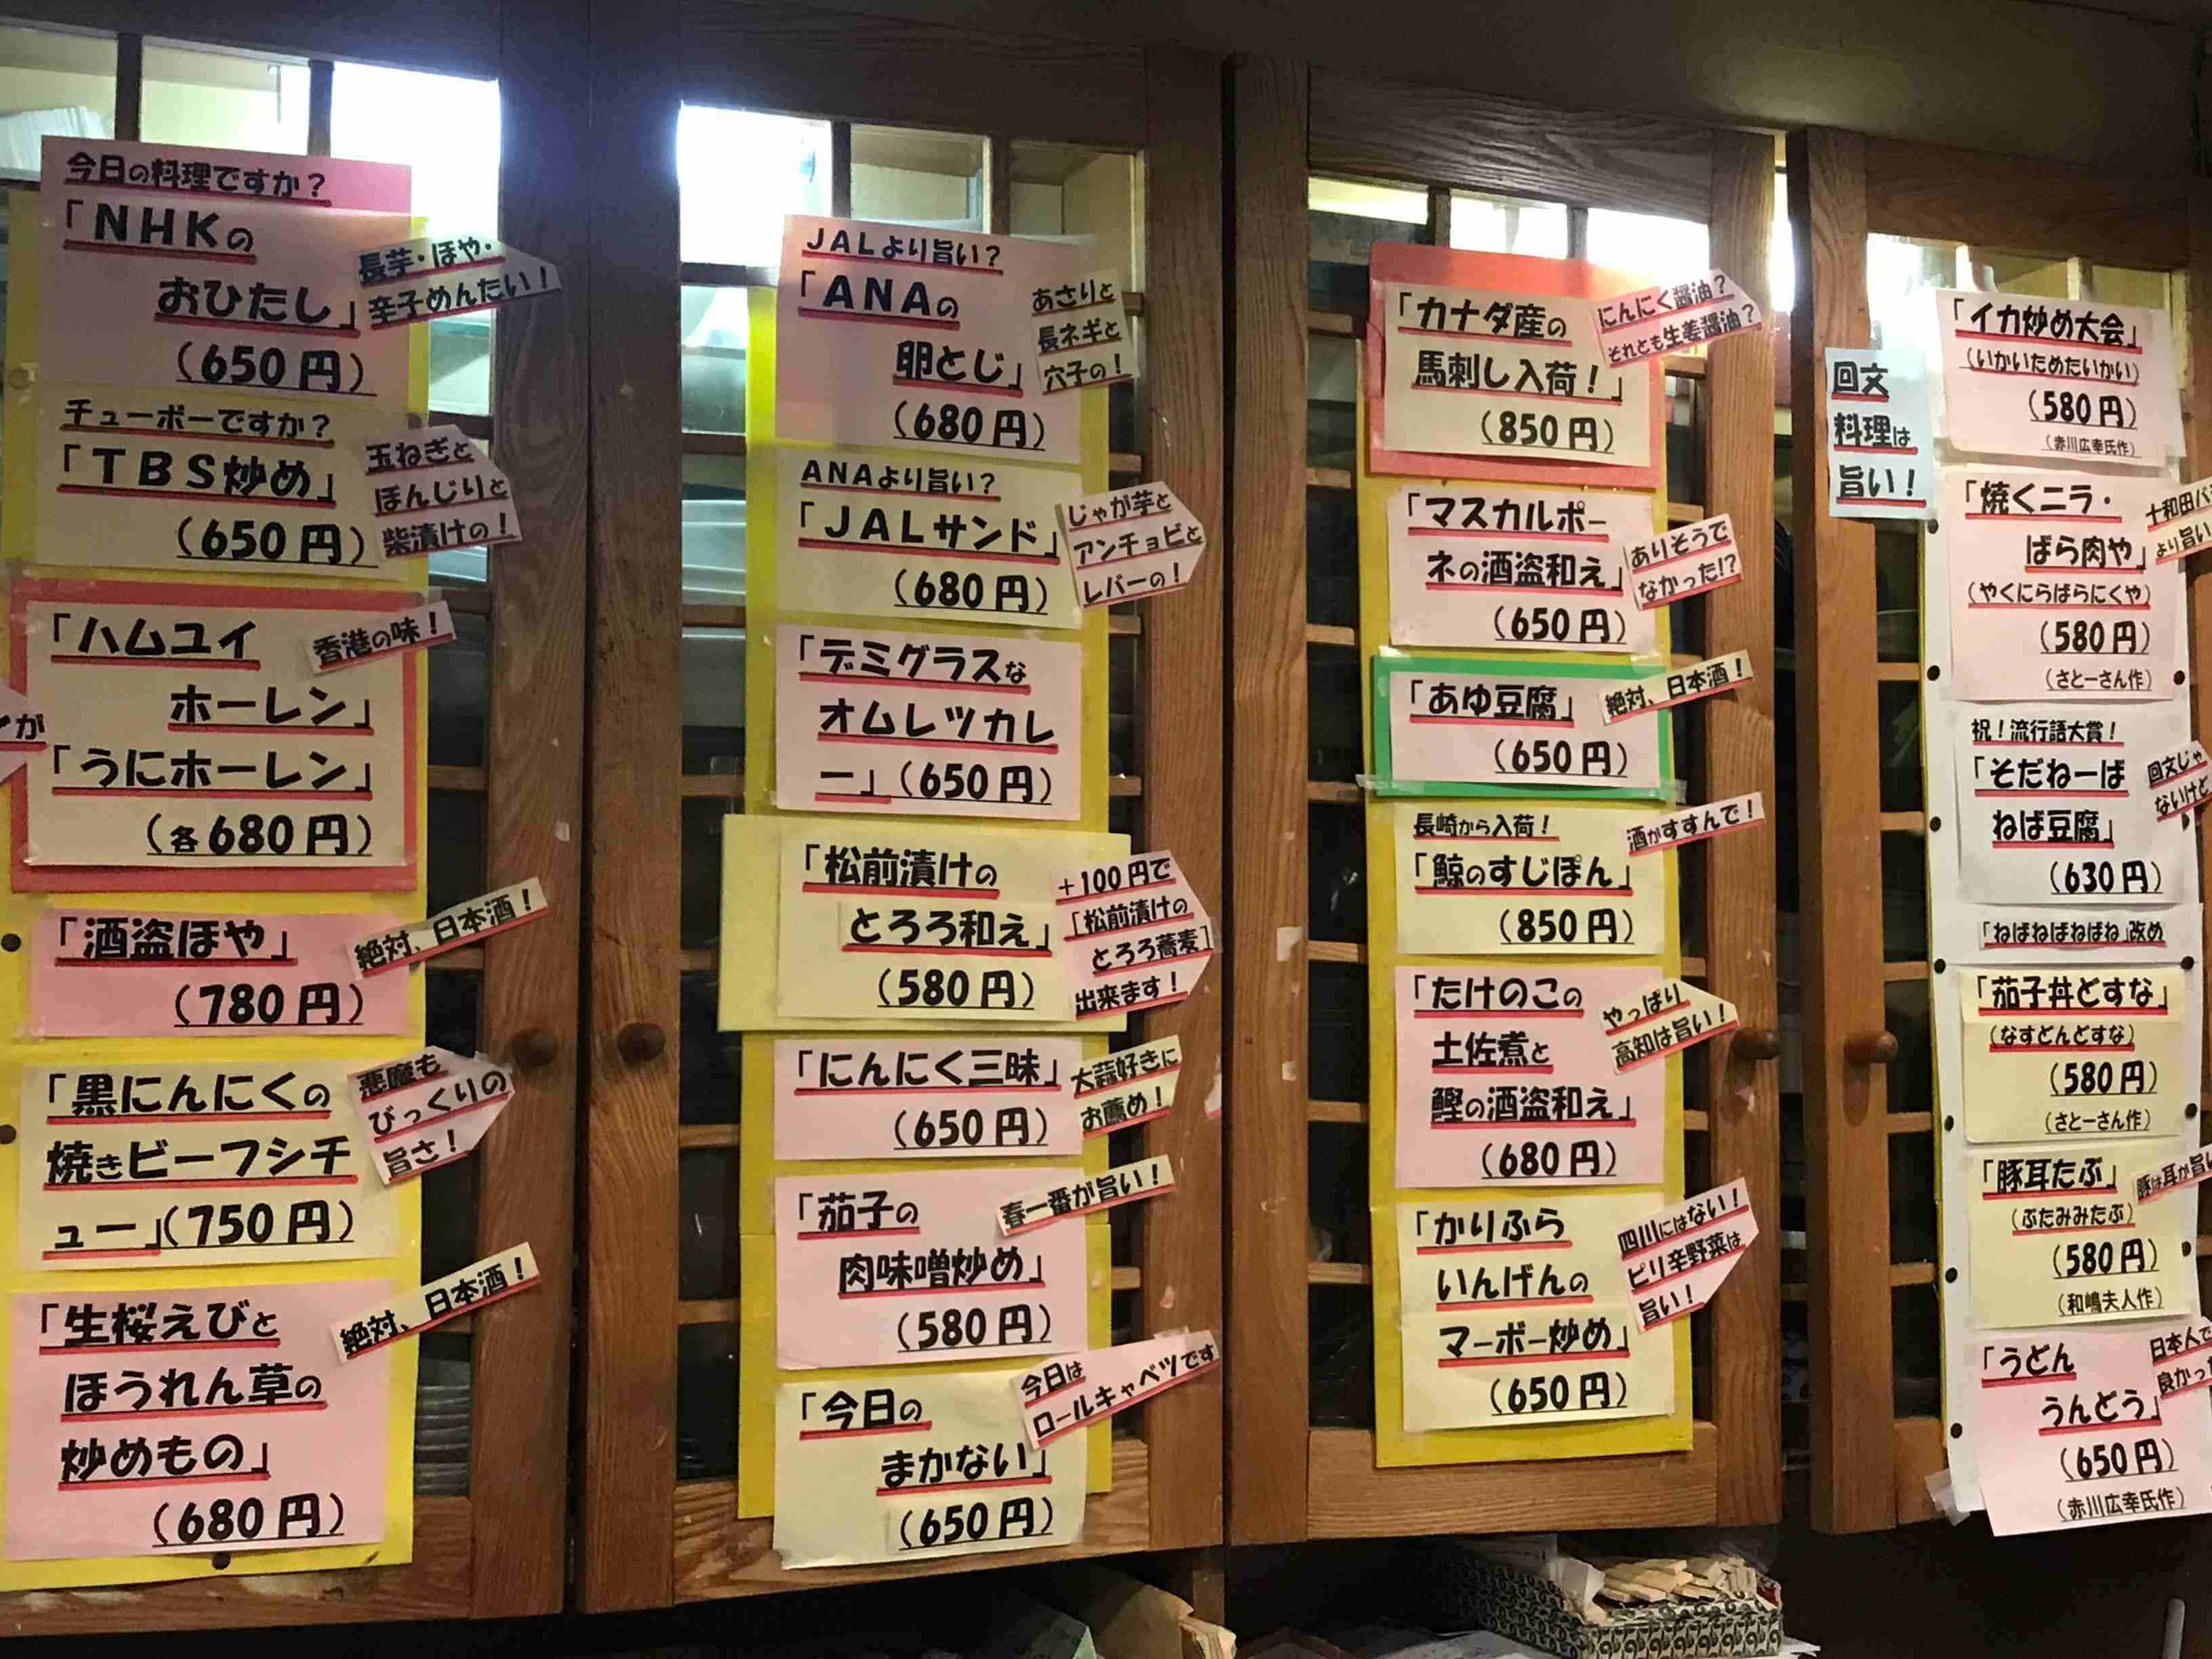 今日の料理ですか?
「NHKの
おひたし」
(650円)
長芋・ほや・
辛子めんたい!
チューボーですか?
「TBS炒め」
(650円)
玉ねぎと
ぼんじりと
柴漬けの!
「ハムユイ
ホーレン」
「うにホーレン」
(各680円)
香港の味!
が
「酒盗ほや」
(780円)
絶対、日本酒!
「黒にんにくの
焼きビーフシチ
ュー」(750円)
悪魔も
びっくりの
旨さ!
「生桜えびと
ほうれん草の
炒めもの」
(680円)
絶対、日本酒!
JALより旨い?
「ANAの
卵とじ」
(680円)
あさりと
長ネギと
穴子の!
ANAより旨い?
「JALサンド」
(680円)
じゃが芋と
アンチョビと
レバーの!
「デミグラスな
オムレツカレ
ー」(650円)
「松前漬けの
とろろ和え」
(580円)
+100円で
[松前漬けの
とろろ蕎麦]
出来ます!
「にんにく三昧」
(650円)
大蒜好きに
お薦め!
「茄子の
肉味噌炒め」
(580円)
春一番が旨い!
「今日の
まかない」
(650円)
今日は
ロールキャベツです
「カナダ産の
馬刺し入荷!」
(850円)
にんにく醤油?
それとも生姜醤油?
「マスカルポー
ネの酒盗和え」
(650円)
ありそうで
なかった!?
「あゆ豆腐」
(650円)
絶対、日本酒!
長崎から入荷!
「鯨のすじぽん」
(850円)
酒がすすんで!
「たけのこの
土佐煮と
鰹の酒盗和え」
(680円)
やっぱり
高知は旨い!
「かりふら
いんげんの
マーボー炒め」
(650円)
四川にはない!
ピリ辛野菜は
旨い!
回文
料理は
旨い!
「イカ炒め大会」
(いかいためたいかい)
(580円)
(赤川広幸氏作)
「焼くニラ・
ばら肉や」
(やくにらばらにくや)
(580円)
(さとーさん作)
十和田バ
より旨い
祝!流行語大賞!
「そだねーば
ねば豆腐」
(630円)
回文じゃ
ないけど
「ねばねばねばね」改め
「茄子丼どすな」
(なすどんどすな)
(580円)
(さとーさん作)
「豚耳たぶ」
(ぶたみみたぶ)
(580円)
(和嶋夫人作)
豚は耳が旨い
「うどん
うんとう」
(650円)
(赤川広幸氏作)
日本人で
良かっ